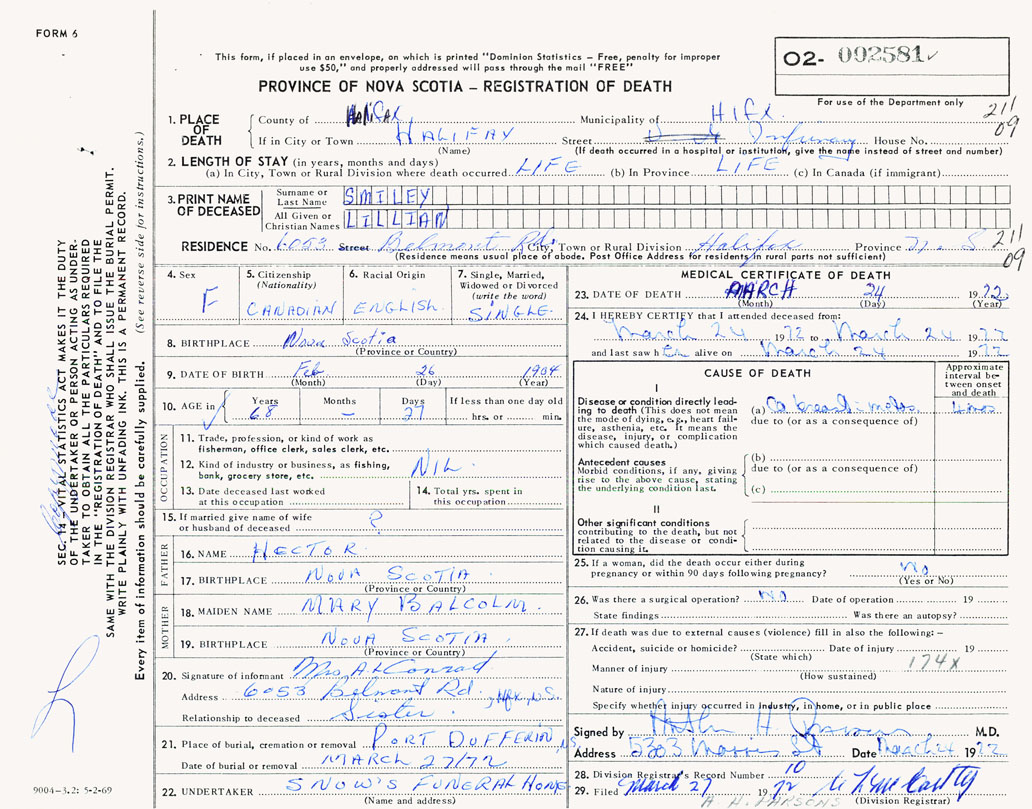 FORM 6
This form, if placed in an envelope, on which is printed "Dominion Statistics – Free, penalty for improper
use $50," and properly addressed will pass through the mail "FREE"
O2- 002581
For use of the Department only
PROVINCE OF NOVA SCOTIA – REGISTRATION OF DEATH
211
09
1. PLACE OF DEATH
County of Halifax Municipality of Hfx
If in City or Town HALIFAX Street Infirmary House No.
(Name) (If death occurred in a hospital or institution, give the name instead of street and number)
2. LENGTH OF STAY (in years, months and days)
(a) In City, Town or Rural Division where death occurred LIFE (b) In Province LIFE (c) In Canada (if immigrant)
3. PRINT NAME OF DECEASED
Surname or Last Name SMILEY
All Given or Christian Names LILLIAN
RESIDENCE No. 6053 Street Belmont Rd. City, Town or Rural Division Halifax Province N. S.
211
09
(Residence means usual place of abode. Post Office Address for residents in rural parts not sufficient)
4. Sex F
5. Citizenship (Nationality) CANADIAN
6. Racial Origin ENGLISH
7. Single, Married, Widowed or Divorced (write the word) SINGLE
8. BIRTHPLACE Nova Scotia
(Province or Country)
9. DATE OF BIRTH Feb 26 1904
(Month) (Day) (Year)
10. AGE in Years 68 Months – Days 27 If less than one day old hrs. or min.
OCCUPATION
11. Trade, profession, or kind of work as fisherman, office clerk, sales clerk, etc.
12. Kind of industry or business, as fishing, bank, grocery store, etc. NIL
13. Date deceased last worked at this occupation
14. Total yrs. spent in this occupation
15. If married give name of wife or husband of deceased ?
FATHER
16. NAME HECTOR
17. BIRTHPLACE NOVA SCOTIA
(Province or Country)
MOTHER
18. MAIDEN NAME MARY BALCOLM
19. BIRTHPLACE NOVA SCOTIA
(Province or Country)
20. Signature of informant Mrs. A L Conrad
Address 6053 Belmont Rd., Hfx, N.S.
Relationship to deceased Sister
21. Place of burial, cremation or removal PORT DUFFERIN, NS
Date of burial or removal MARCH 27/72
22. UNDERTAKER SNOW'S FUNERAL HOME
(Name and address)
MEDICAL CERTIFICATE OF DEATH
23. DATE OF DEATH MARCH 24 1972
(Month) (Day) (Year)
24. I HEREBY CERTIFY that I attended deceased from:
March 24 1972 to March 24 1972
and last saw her alive on March 24 1972
CAUSE OF DEATH
Approximate interval between onset and death
I
Disease or condition directly leading to death (This does not mean the mode of dying, e.g., heart failure, asthenia, etc. It means the disease, injury, or complication which caused death.)
(a) Ca breast
due to (or as a consequence of)
Antecedent causes
Morbid conditions, if any, giving rise to the above cause, stating the underlying condition last.
(b)
due to (or as a consequence of)
(c)
II
Other significant conditions
contributing to the death, but not related to the disease or condition causing it.
25. If a woman, did the death occur either during pregnancy or within 90 days following pregnancy? No
(Yes or No)
26. Was there a surgical operation? No Date of operation 19
State findings Was there an autopsy?
27. If death was due to external causes (violence) fill in also the following: –
Accident, suicide or homicide? Date of injury 19
(State which)
Manner of injury 174x
(How sustained)
Nature of injury
Specify whether injury occurred in industry, in home, or in public place
Signed by M.D.
Address 5303 Morris St Date March 24 1972
28. Division Registrar's Record Number 10
29. Filed March 27 1972
(Division Registrar)
A. H. PARSONS
SEC. 14 – VITAL STATISTICS ACT MAKES IT THE DUTY
OF THE UNDERTAKER OR PERSON ACTING AS UNDERTAKER TO OBTAIN ALL THE PARTICULARS REQUIRED
IN THE "REGISTRATION OF DEATH" AND TO FILE THE
SAME WITH THE DIVISION REGISTRAR WHO SHALL ISSUE THE BURIAL PERMIT.
WRITE PLAINLY WITH UNFADING INK. THIS IS A PERMANENT RECORD.
Every item of information should be carefully supplied. (See reverse side for instructions.)
9004-3.2: 5-2-69